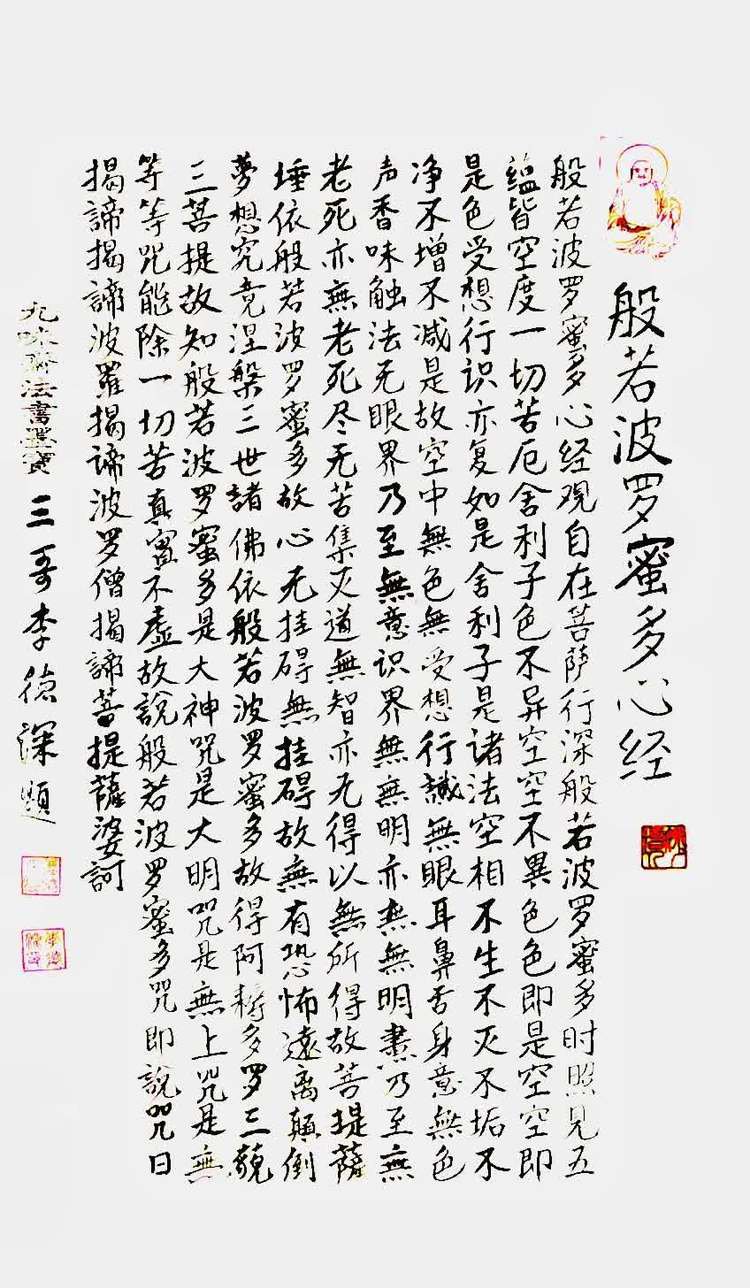 般若波罗蜜多心经
般若波罗蜜多心经观自在菩萨行深般若波罗蜜多时照见五
蕴皆空度一切苦厄舍利子色不异空空不異色色即是空空即
是色受想行识亦复如是舍利子是诸法空相不生不灭不垢不
净不增不减是故空中無色無受想行識無眼耳鼻舌身意無色
声香味触法无眼界乃至無意识界無無明亦無無明盡乃至無
老死亦無老死尽无苦集灭道無智亦无得以無所得故菩提薩
埵依般若波罗蜜多故心无挂碍無挂碍故無有恐怖遠离顛倒
夢想究竟涅槃三世諸佛依般若波罗蜜多故得阿耨多罗三藐
三菩提故知般若波罗蜜多是大神咒是大明咒是無上咒是無
等等咒能除一切苦真實不虚故說般若波罗蜜多咒即說咒曰
揭諦揭諦波羅揭諦波罗僧揭諦菩提薩婆訶
九味法書鑒寶三哥李德深題